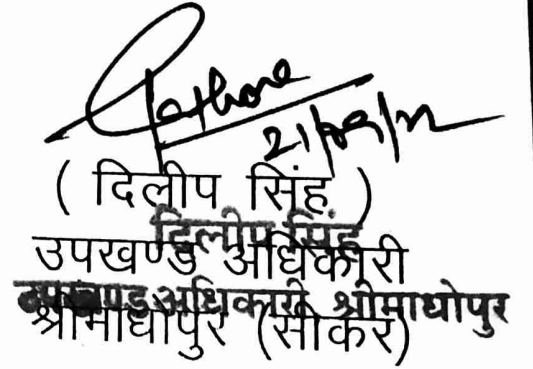 Rathore
21/09/22
( दिलीप सिंह )
दिलीप सिंह
उपखण्ड अधिकारी
उपखण्ड अधिकारी श्रीमाधोपुर
श्रीमाधोपुर (सीकर)